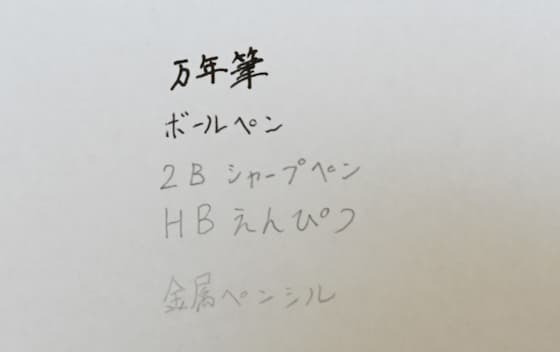 万年筆
ボールペン
2B シャープペン
HB えんぴつ
金属ペンシル